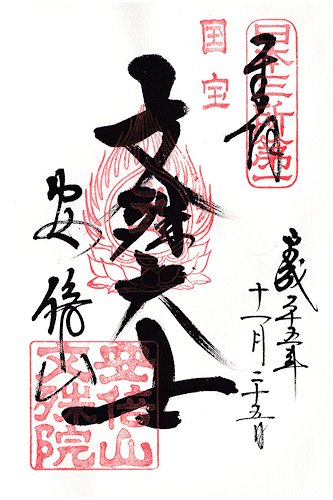 奉拝
日本三所第一
国宝
平成二十五年
十一月二十五日
文殊大士
安倍山
安倍山
文殊院